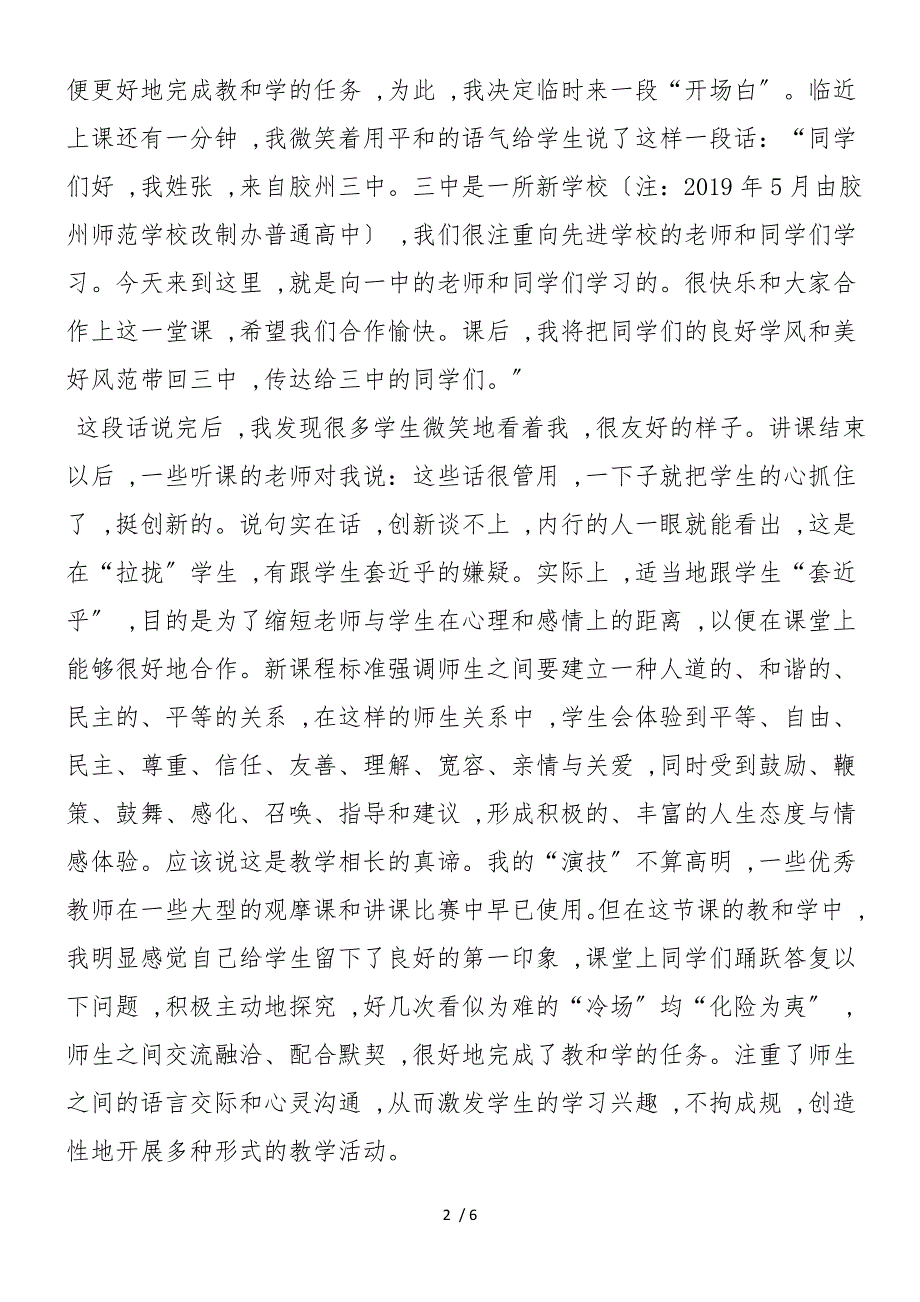 便更好地完成教和学的任务 ,为此 ,我决定临时来一段“开场白〞。临近
上课还有一分钟 ,我微笑着用平和的语气给学生说了这样一段话：“同学
们好 ,我姓张 ,来自胶州三中。三中是一所新学校〔注：2019 年 5 月由胶
州师范学校改制办普通高中〕 ,我们很注重向先进学校的老师和同学们学
习。今天来到这里 ,就是向一中的老师和同学们学习的。很快乐和大家合
作上这一堂课 ,希望我们合作愉快。课后 ,我将把同学们的良好学风和美
好风范带回三中 ,传达给三中的同学们。〞
这段话说完后 ,我发现很多学生微笑地看着我 ,很友好的样子。讲课结束
以后 ,一些听课的老师对我说：这些话很管用 ,一下子就把学生的心抓住
了 ,挺创新的。说句实在话 ,创新谈不上 ,内行的人一眼就能看出 ,这是
在“拉拢〞学生 ,有跟学生套近乎的嫌疑。实际上 ,适当地跟学生“套近
乎〞 ,目的是为了缩短老师与学生在心理和感情上的距离 ,以便在课堂上
能够很好地合作。新课程标准强调师生之间要建立一种人道的、和谐的、
民主的、平等的关系 ,在这样的师生关系中 ,学生会体验到平等、自由、
民主、尊重、信任、友善、理解、宽容、亲情与关爱 ,同时受到鼓励、鞭
策、鼓舞、感化、召唤、指导和建议 ,形成积极的、丰富的人生态度与情
感体验。应该说这是教学相长的真谛。我的“演技〞不算高明 ,一些优秀
教师在一些大型的观摩课和讲课比赛中早已使用。但在这节课的教和学中 ,
我明显感觉自己给学生留下了良好的第一印象 ,课堂上同学们踊跃答复以
下问题 ,积极主动地探究 ,好几次看似为难的“冷场〞均“化险为夷〞 ,
师生之间交流融洽、配合默契 ,很好地完成了教和学的任务。注重了师生
之间的语言交际和心灵沟通 ,从而激发学生的学习兴趣 ,不拘成规 ,创造
性地开展多种形式的教学活动。
2 / 6